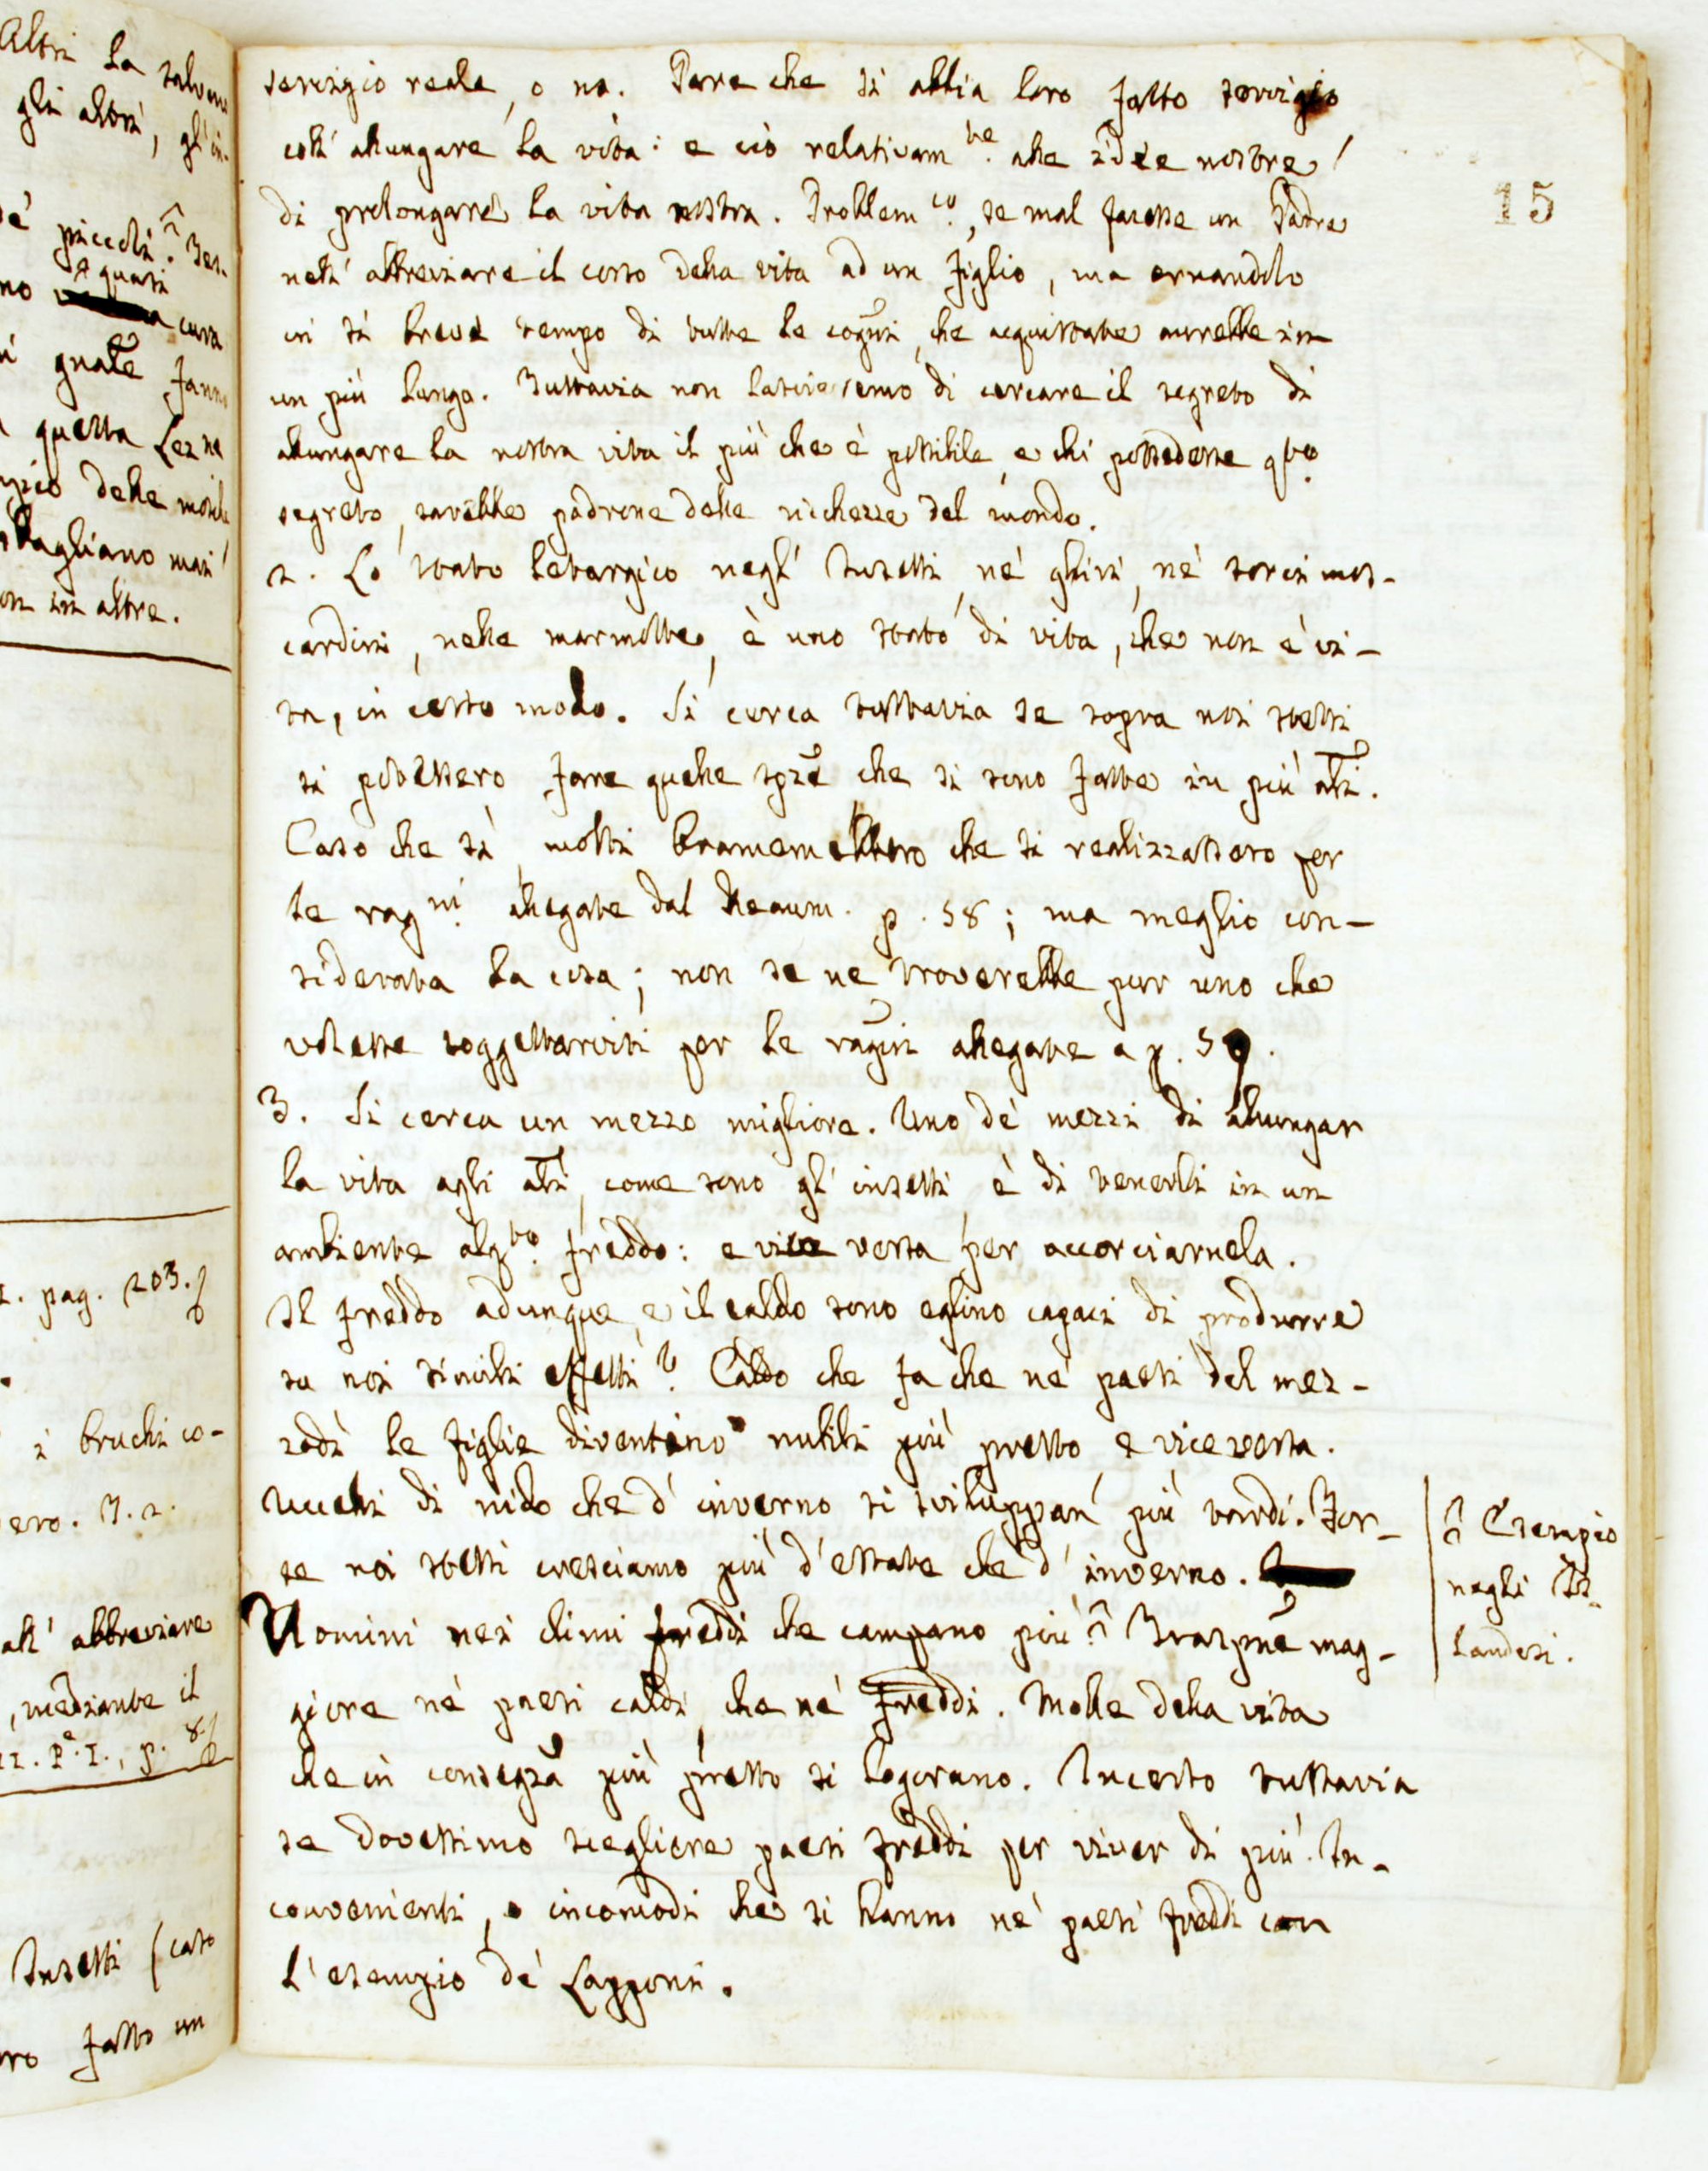 Altri la
gli altri, gl'in-
piccoli.
quasi
cura
fanno
questa Lez.ne
delle
sbagliano mai
in altre.
pag. 203.
i bruchi co-
all' abbreviare
, mediante il
Insetti (caso
fatto un
15
servigio reale, o no. Pare che si abbia loro fatto servigio
coll' allungare la vita: e ciò relativam.te alle idee nostre
di prolongare la vita nostra. Problem.co, se mal facesse un Padre
nell' abbreviare il corso della vita ad un figlio, ma ornandolo
in sì breve tempo di tutte le cogni, che acquistate avrebbe in
un più lungo. Tuttavia non lascieremo di cercare il segreto di
allungare la nostra vita il più che è possibile, e chi possedesse q.to
segreto, sarebbe padrone delle richezze del mondo.
2. Lo stato letargico negl' Insetti, ne' ghiri, ne' sorci mos-
cardini, nelle marmotte, è uno stato di vita, che non è vi-
ta, in certo modo. Si cerca tuttavia se sopra noi stessi
si potessero farre quelle spze che si sono fatte in più ali.
Caso che sì, molti bramerebbero che si realizzassero per
le rag.ni allegate dal Reaum. p. 58; ma meglio con-
siderata la cosa; non se ne troverebbe pur uno che
volesse soggettarvisi per le ragni allegate a p. 59.
3. Si cerca un mezzo migliore. Uno de' mezzi di allungar
la vita agli ali, come sono gl' insetti, è di tenerli in un
ambiente alq.to freddo: e vice versa per accorciarnela.
Il freddo adunque, e il caldo sono eglino capaci di produrre
su noi simili effetti? Caldo che fa che ne' paesi del mez-
zodì le figlie diventino nubili più presto e vice versa.
Uccelli di nido che d' inverno si sviluppan più tardi. For-
se noi stessi cresciamo più d'estate che d' inverno.
Uomini nei climi freddi che campano più. Traspne mag-
giore ne' paesi caldi, che ne' freddi. Molle della vita
che in consegza più presto si logorano. Incerto tuttavia
se dovessimo scegliere paesi freddi per viver di più. In-
convenienti, o incomodi che si hanno ne' paesi freddi con
l'esempio de' Lapponi.
Esempio
negli Is-
landesi.